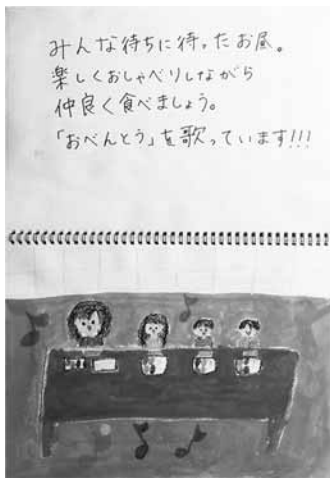 みんな待ちに待ったお昼。
楽しくおしゃべりしながら
仲良く食べましょう。
「おべんとう」を歌っています!!!